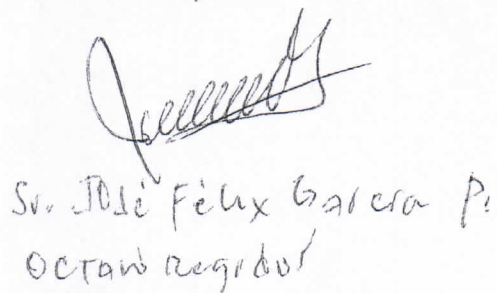 Sr. José Félix Garcia P.
Octavo Regidor